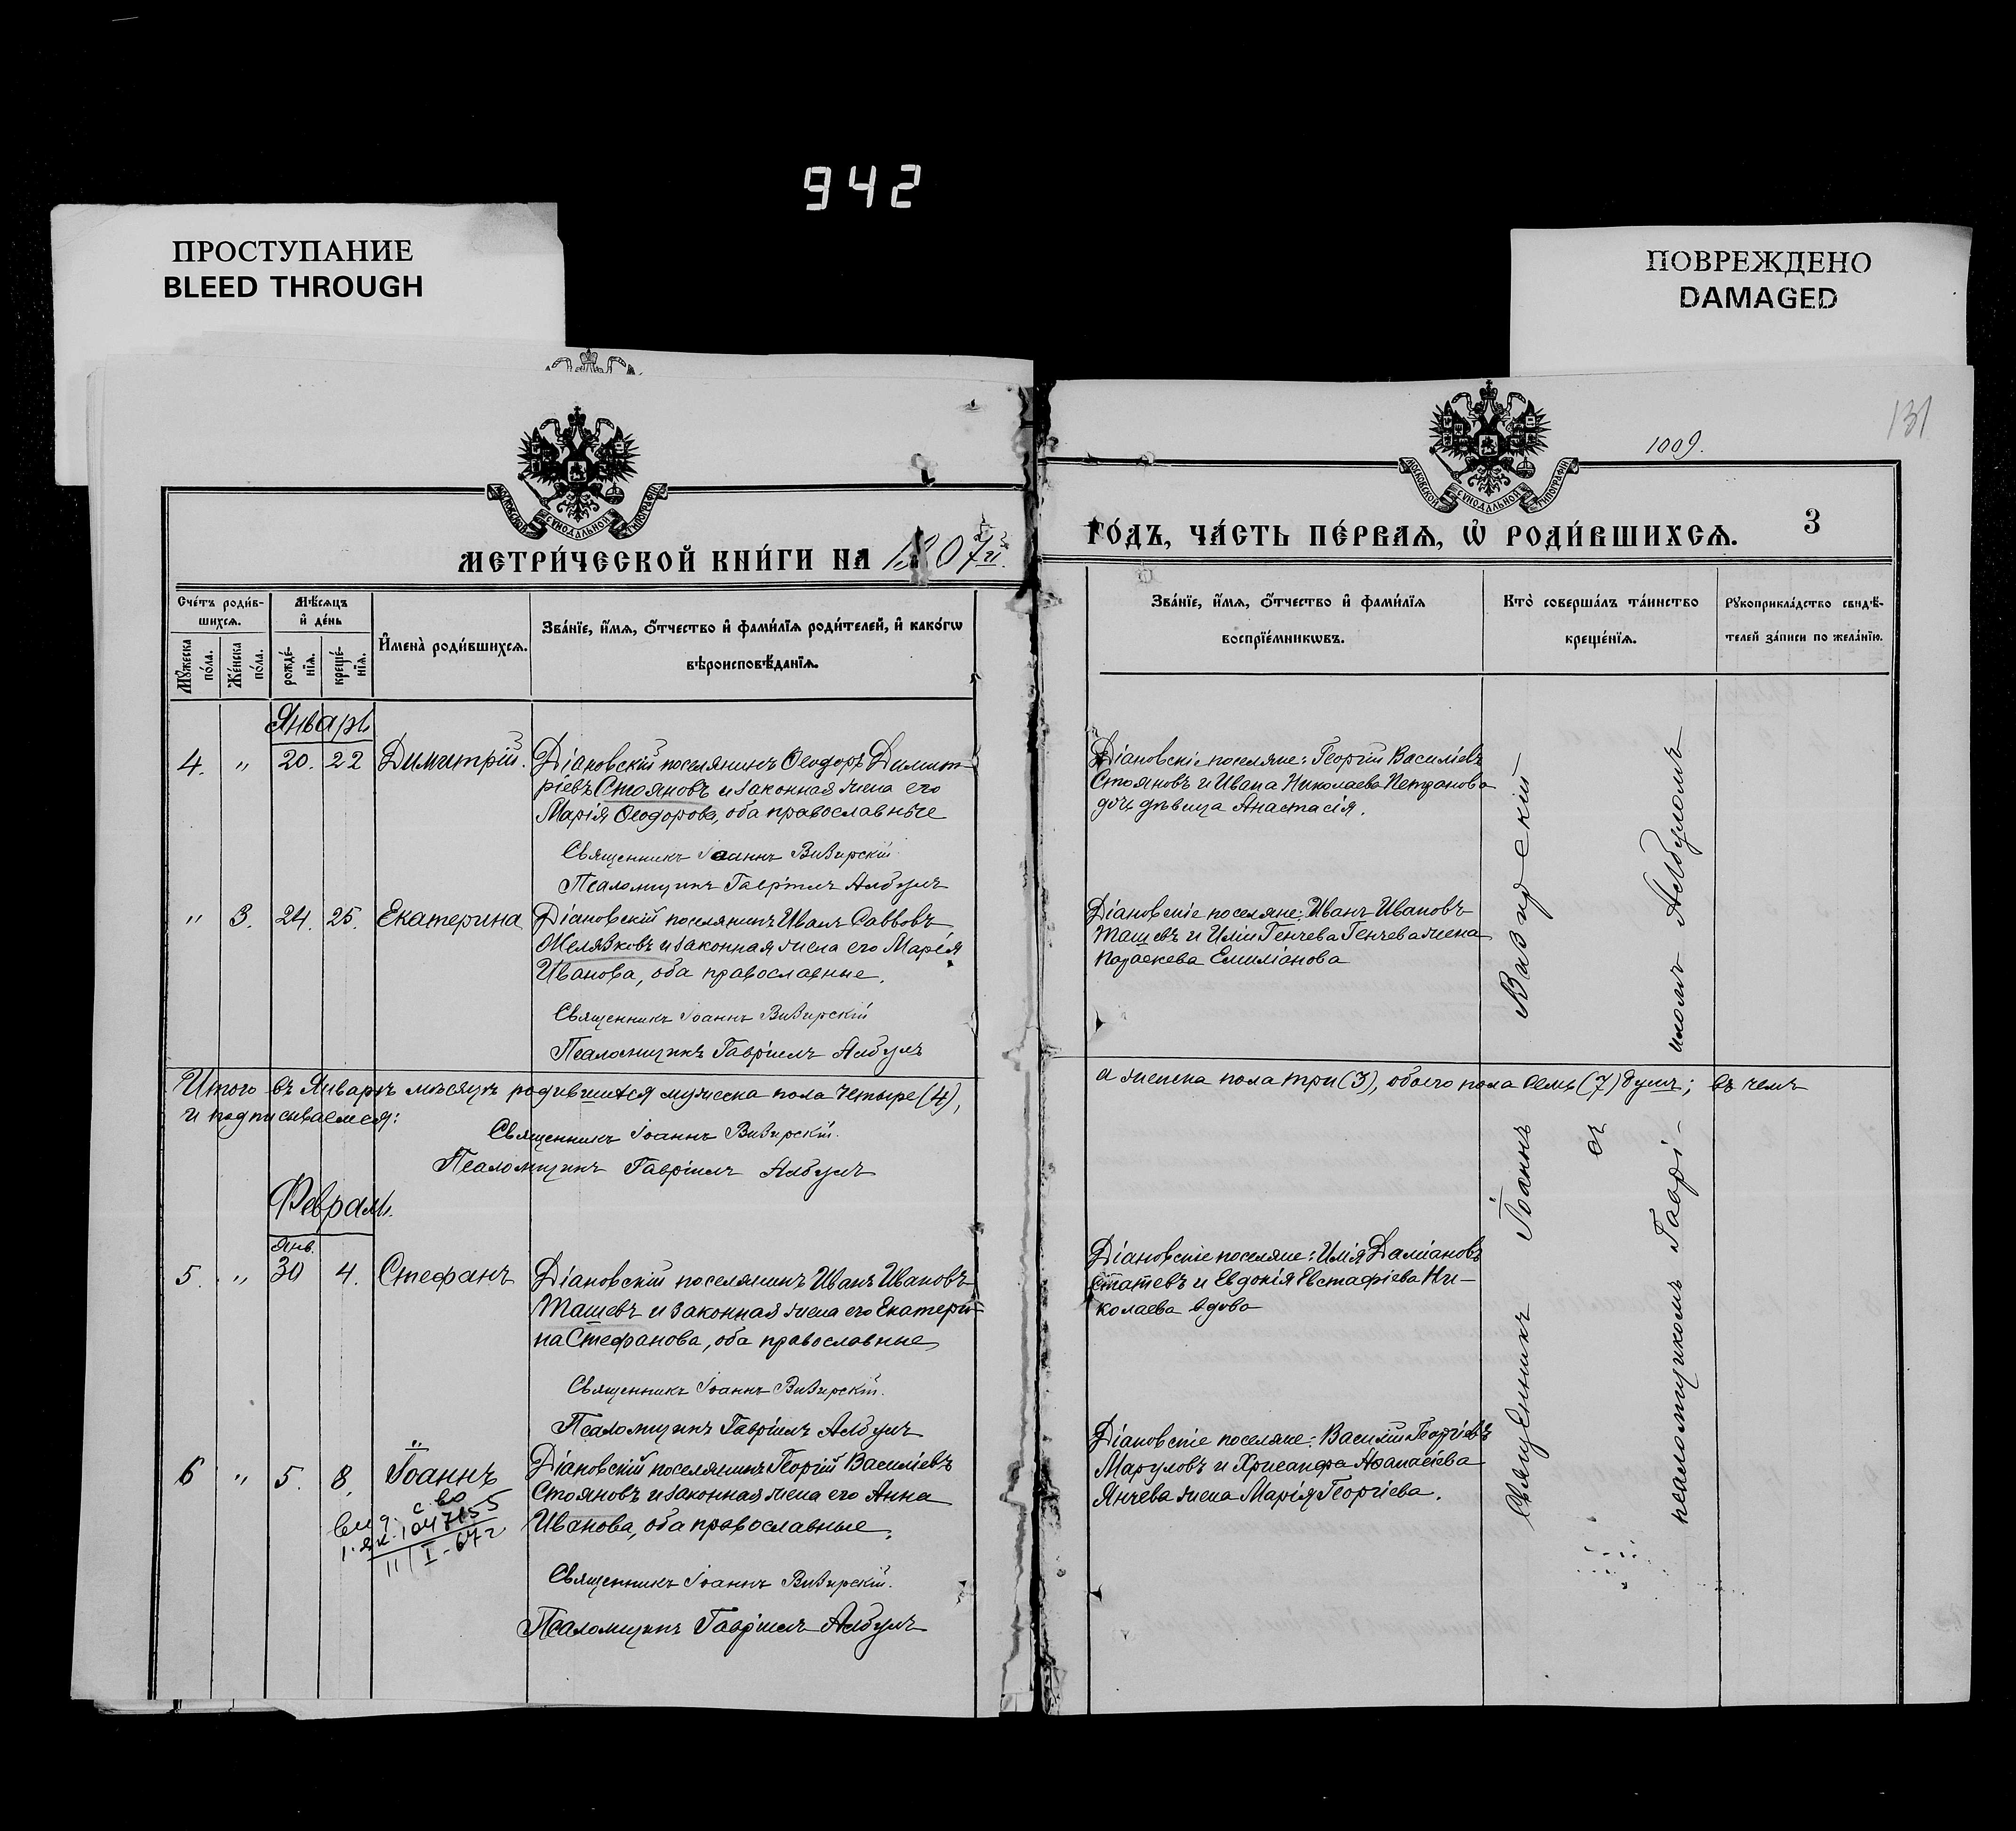 942
ПРОСТУПАНИЕ
BLEED THROUGH
ПОВРЕЖДЕНО
DAMAGED
131
1009.
МОСКОВСКОЙ СѴНОДАЛЬНОЙ ТИПОГРАФІИ
МОСКОВСКОЙ СѴНОДАЛЬНОЙ ТИПОГРАФІИ
МЕТРИ́ЧЕСКОЙ КНИ́ГИ НА 1907й
ГО́ДЪ, ЧА́СТЬ ПЕ́РВАѦ, Ѽ РОДИ́ВШИХСѦ.
3
Сче́тъ роди́в-
шихсѧ.
Мꙋ́жеска по́ла.
Же́нска по́ла.
Мѣ́сѧцъ
и҆ де́нь
рожде́-
нїѧ.
креще́-
нїѧ.
И҆мена̀ роди́вшихсѧ.
Зва́нїе, и҆́мѧ, ѻ҆́тчество и҆ фами́лїѧ роди́телей, и҆ како́гѡ
вѣроисповѣ́данїѧ.
Зва́нїе, и҆́мѧ, ѻ҆́тчество и҆ фами́лїѧ
воспрїе́мникѡвъ.
Кто̀ соверша́лъ та́инство
креще́нїѧ.
Рꙋкоприкла́дство свидѣ́-
телей за́писи по жела́нїю.
Январь
4. " 20. 22 Димитрій.
Діановскій поселянинъ Ѳеодоръ Димит-
ріевъ Стояновъ и законная жена его
Марія Ѳеодорова, оба православные
Священникъ Іоаннъ Визирскій
Псаломщикъ Гавріилъ Албулъ
Діановскіе поселяне: Георгій Василіевъ
Стояновъ и Ивана Николаева
дочь дѣвица Анастасія.
" 3. 24. 25. Екатерина
Діановскій поселянинъ Иванъ Саввовъ
Желязковъ и законная жена его Марія
Иванова, оба православные.
Священникъ Іоаннъ Визирскій
Псаломщикъ Гавріилъ Албулъ
Діановскіе поселяне: Иванъ Ивановъ
Ташевъ и Иліи Генчева Генчева жена
Параскева Емиліанова
Итого въ Январѣ мѣсяцѣ родившихся мужеска пола четыре (4),
а женска пола три (3), обоего пола семь (7) душъ; въ чемъ
и подписываемся:
Священникъ Іоаннъ Визирскій.
Псаломщикъ Гавріилъ Албулъ
Февраль.
Янв.
5. " 30 4. Стефанъ
Діановскій поселянинъ Иванъ Ивановъ
Ташевъ и законная жена его Екатери-
на Стефанова, оба православные
Священникъ Іоаннъ Визирскій.
Псаломщикъ Гавріилъ Албулъ
Діановскіе поселяне: Илія Даміановъ
Статевъ и Евдокія Евстафіева Ни-
колаева вдова
"
6 " 5. 8. Іоаннъ
Діановскій поселянинъ Георгій Василіевъ
Стояновъ и законная жена его Анна
Иванова, оба православные.
Священникъ Іоаннъ Визирскій.
Псаломщикъ Гавріилъ Албулъ
Діановскіе поселяне: Василій Георгіевъ
Маруловъ и Хрисанфа Аѳанасіева
Янчева жена Марія Георгіева.
11/I-67г
Священникъ Іоаннъ Визирскій
съ
псаломщикомъ Гаврі-
иломъ Албуломъ